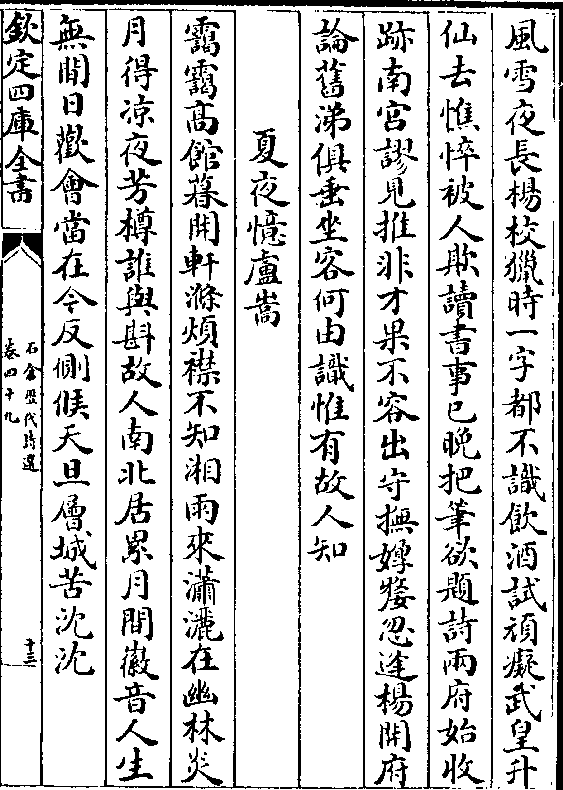 風雪夜長楊校獵時一字都不識飲酒試頑癡武皇升
仙去憔悴被人欺讀書事已晚把筆欲題詩兩府始收
跡南宮謬見推非才果不容出守撫嫠忽逢楊開府
論舊涕俱垂坐客何由識惟有故人知
夏夜憶盧嵩
靄靄高館暮開軒滌煩襟不知湘雨來瀟灑在幽林炎
月得凉夜芳樽誰與斟故人南北居累月間徽音人生
無閒日歡會當在今反側候天旦層城苦沈沈
欽定四庫全書
石倉歷代詩選
卷四十九
十三